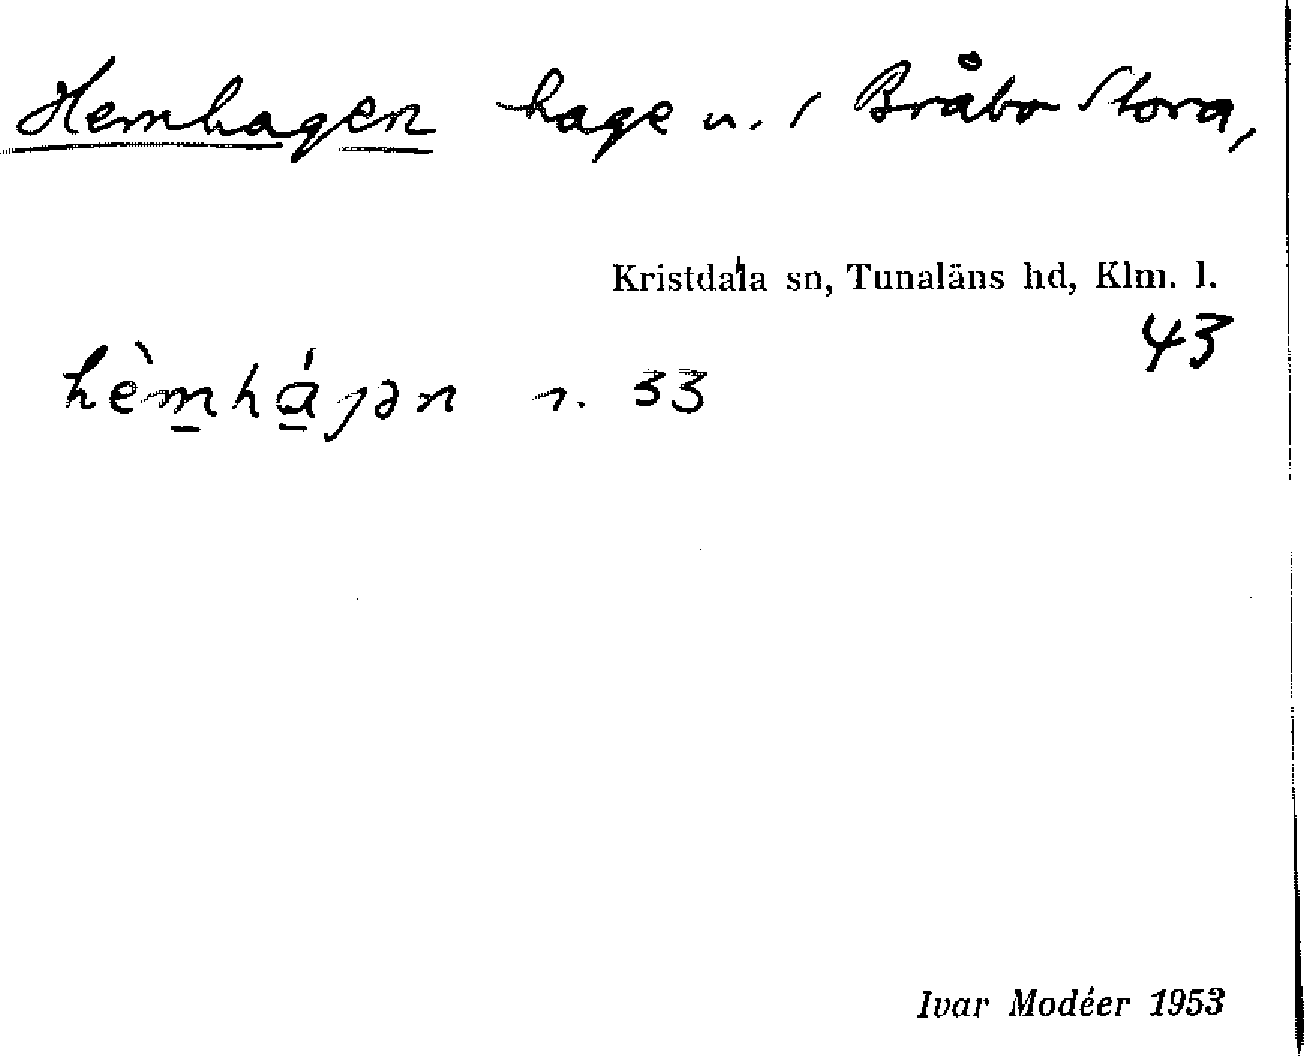 Hemhagen hage u. / Bråbo Stora,
Kristdala sn, Tunaläns hd, Klm. l.
43
hèm̲há̲jən 1. 33
Ivar Modéer 1953